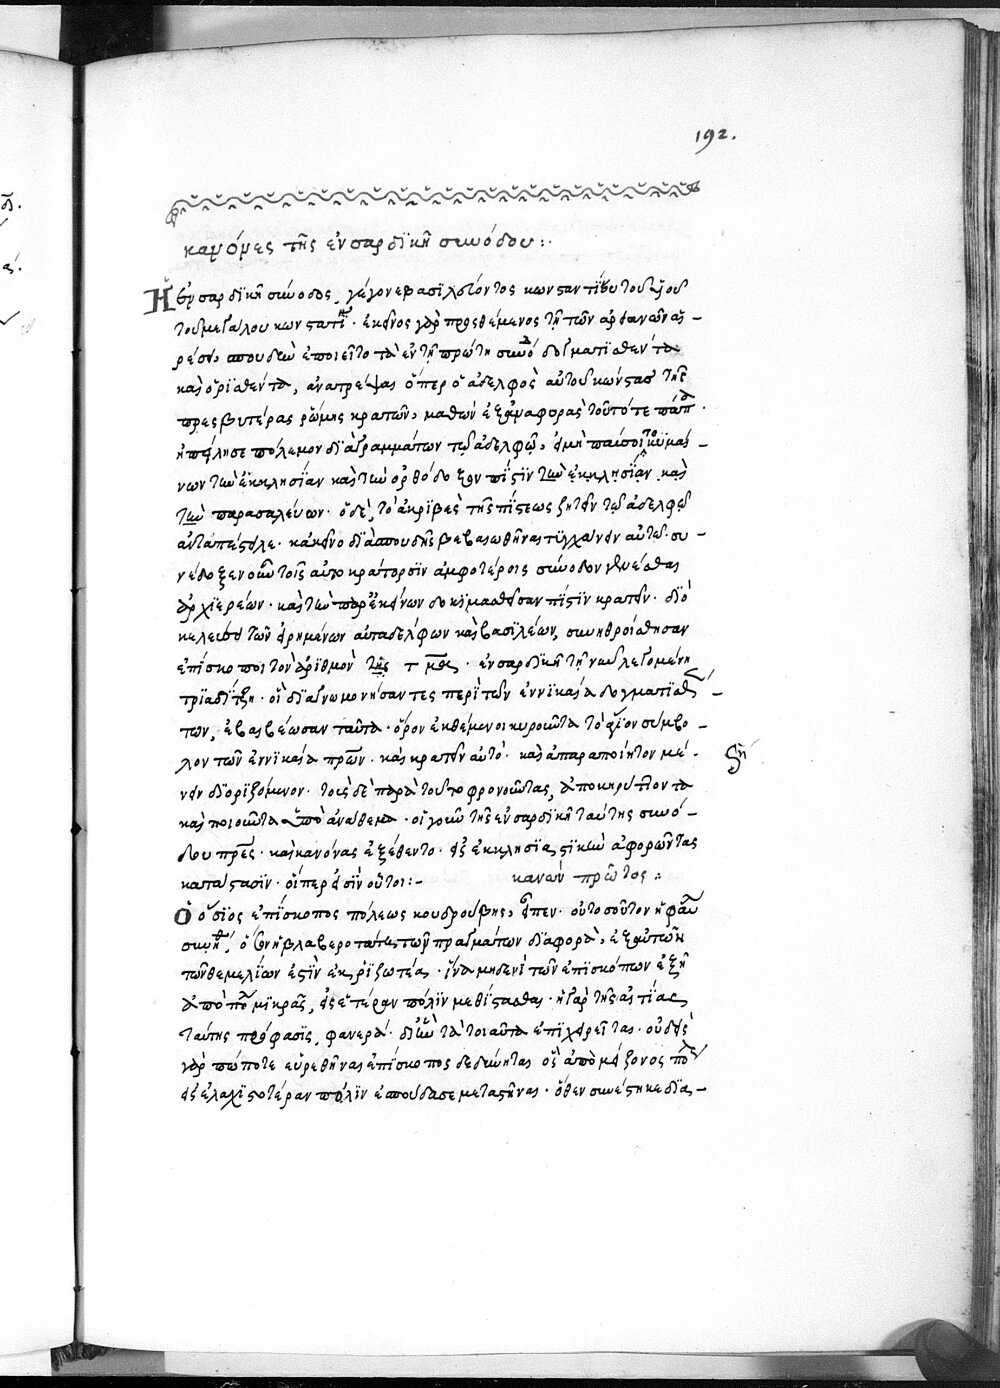 192.
κανόνες τῆς ἐν σαρδϊκῆ συνόδου :.
Ἡ ἐν σαρδϊκῆ σύνοδος, γέγονε βασιλεύοντος κωνσταντίου τοῦ υἱοῦ
τοῦ μεγάλου κωνσταντί · ἐκεῖνος γὰρ προσθέμενος τῆ τῶν ἀρειανῶν αἱ –
ρέσει, σπουδὴν ἐποιεῖτο τὰ ἐν τῆ πρώτη συνό δογματϊσθέντα
καὶ ὁρϊσθέντα, ἀνατρέψαι ὅπερ ὁ ἀδελφὸς αὐτοῦ κώνστας τῆς
πρεσβυτέρας ῥώμης κρατῶν, μαθὼν ἐξ ἀναφορᾶς τοῦ τότε πάπ ·
ἠπείλησε πόλεμον δϊὰ γραμμάτων τῷ ἀδελφῷ, εἰ μὴ παύσοιτο κυμαί –
νων τὴν ἐκκλησΐαν καὶ τὴν ὀρθόδοξον πΐστϊν τὴν ἐκκλησΐαν καὶ
τὴν παρασαλεύων · ὁ δὲ, τὸ ἀκρϊβὲς τῆς πΐστεως ζητεῖν τῷ ἀδελφῷ
ἀνταπέστειλε · κἀκεῖνο δϊὰ σπουδῆς βεβαιωθῆναι τυγχάνειν αὐτῷ · συ –
νέδοξεν οὖν τοῖς αὐτοκράτορσϊν ἀμφοτέροις σύνοδον γενέσθαι
ἀρχϊερέων · καὶ τὴν παρ' ἐκείνων δοκϊμασθεῖσαν πΐστϊν κρατεῖν · δϊὸ
κελεύσει τῶν εἰρημένων αὐταδέλφων καὶ βασϊλέων, συνηθροίσθησαν
ἐπίσκοποι τὸν ἀρϊθμὸν τμα · ἐν σαρδϊκῆ τῆ νῦν λεγομένη
τρϊαδίτζη · οἳ δϊαγνωμονήσαντες περὶ τῶν ἐν νϊκαία δογματϊσθέν –
των, ἐβεβαίωσαν ταῦτα · ὅρον ἐκθέμενοι κυροῦντα τὸ ἅγϊον σύμβο –
λον τῶν ἐν νϊκαία πρων · καὶ κρατεῖν αὐτό · καὶ ἀπαραποίητον μέ –
νειν δϊορϊζόμενον · τοὺς δὲ παρὰ τοῦτο φρονοῦντας, ἀποκηρύττοντα
καὶ ποιοῦντα ὑπὸ ἀνάθεμα · οἱ γοῦν τῆς ἐν σαρδϊκῆ ταύτης συνό –
δου πρες · καὶ κανόνας ἐξέθεντο · εἰς ἐκκλησϊαστϊκὴν ἀφορῶντας
κατάστασϊν · οἵπερ εἰσὶν οὗτοι :– κανὼν πρῶτος :.
Ὁ ὅσϊος ἐπΐσκοπος πόλεως κουδρούβης, εἶπεν · οὐ τοσοῦτον ἡ φαύ
συνή, ὅσον ἡ βλαβερωτάτη τῶν πραγμάτων δϊαφορὰ, ἐξ αὐτῶν
τῶν θεμελίων ἐστὶν ἐκρϊζωτέα · ἵνα μηδενὶ τῶν ἐπϊσκόπων ἐξῆ
ἀπὸ πο μϊκρᾶς, εἰς ἑτέραν πόλϊν μεθΐστασθαι · ἡ γὰρ τῆς αἰτΐας
ταύτης πρόφασϊς, φανερά · δϊ' ἣν τὰ τοιαῦτα ἐπϊχειρεῖται · οὐδεὶς
γὰρ πώποτε εὑρεθῆναι ἐπΐσκοπος δεδύνηται ὃς ἀπὸ μείζονος πό
εἰς ἐλαχϊστοτέραν πόλϊν ἐσπούδασε μεταστῆναι · ὅθεν συνέστηκε δϊα –